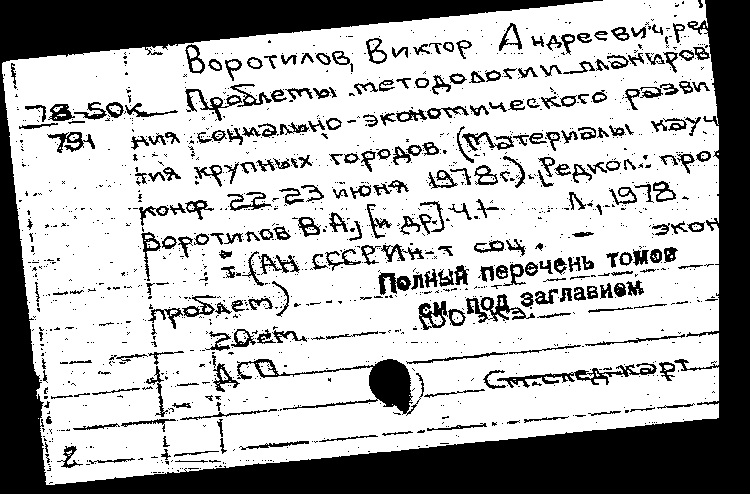 Воротилов, Виктор Андреевич, ред
78-50к Проблемы методологии планиров
79ч ния социально-экономического разви
тия крупных городов. (Материалы науч
конф 22-23 июня 1978г.). [Редкол.: проф
Воротилов В.А., [и др]. Ч.1- Л., 1978.
т. (АН СССР. Ин-т соц. - экон
проблем).
Полный перечень томов
см. под заглавием
20 см. 100 экз.
ДСП.
См. след. карт
2